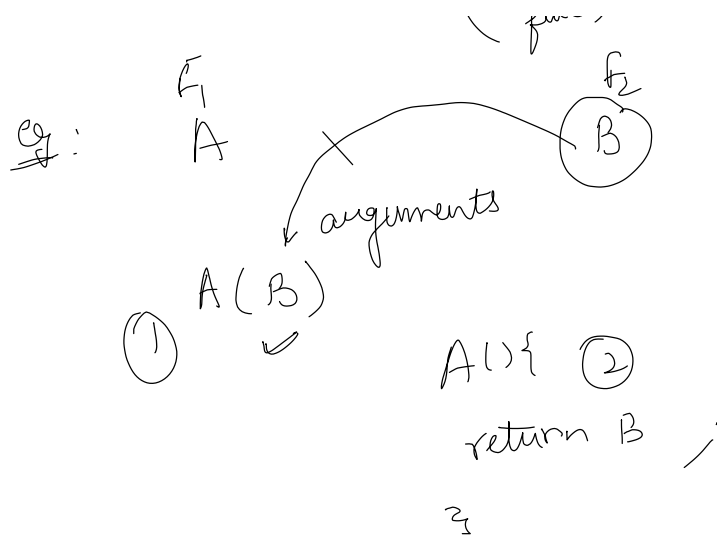 F1 F2
eg: A B
arguments
A(B)
①
A(){ ②
return B
}